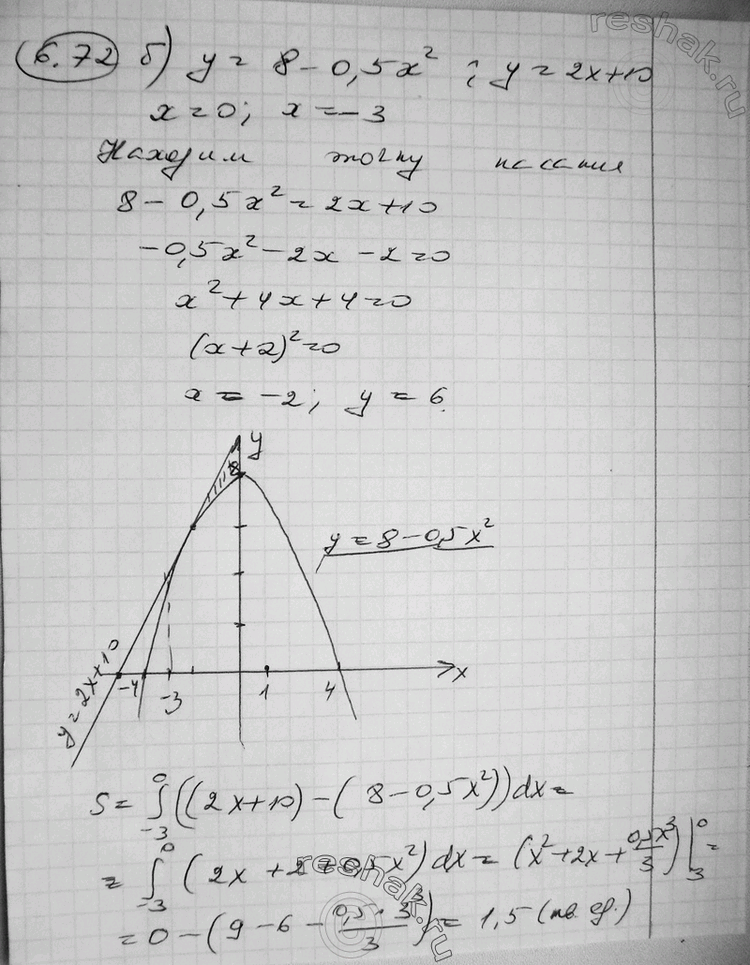 reshak.ru
6.72 б) y = 8 - 0,5x² ; y = 2x+10
x = 0; x = -3
Находим точку касания
8 - 0,5x² = 2x+10
-0,5x² - 2x - 2 = 0
x² + 4x + 4 = 0
(x+2)² = 0
x = -2; y = 6.
y
8
y = 8 - 0,5x²
y = 2x+10
-4 -3 1 4 x
S = ∫₋₃⁰ ((2x+10) - (8 - 0,5x²))dx =
= ∫₋₃⁰ (2x + 2 + 0,5x²)dx = (x² + 2x + 0,5x³/3)|₃⁰ =
= 0 - (9 - 6 - 0,5·3³/3) = 1,5 (кв. ед.)
reshak.ru
reshak.ru